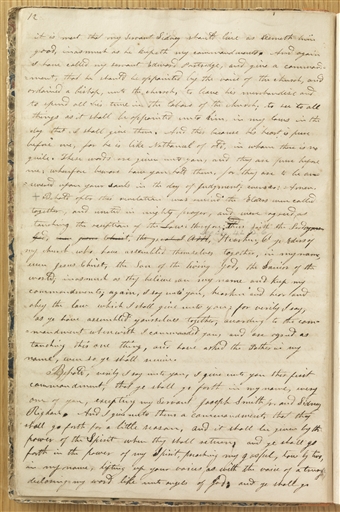 12
it is meet that my servant Sidney should live as seemeth him
good, inasmuch as he keepeth my commandments. And again
I have called my servant Edward Partridge, and give a command-
ment, that he should be appointed by the voice of the church, and
ordained a bishop, unto the church, to leave his merchandise and
to spend all his time in the labors of the church; to see to all
things as it shall be appointed unto him, in my laws in the
day that I shall give them. And this because his heart is pure
before me, for he is like Nathanael of Old, in whom there is no
guile. These words are given unto you, and they are pure before
me, wherefore beware how you hold them, for they are to be an-
swered upon your souls in the day of judgment; even so; Amen.
Behold after this revelation was received the Elders were called
together, and united in mighty prayer, and were agreed, as
touching the reception of the Law; therefore, thus saith the
Hearken, O ye Elders of
my church who have assembled themselves together, in my name,
even Jesus Christ, the Son of the living God, the Savior of the
world; inasmuch as they believe on my name and keep my
commandments; again, I say unto you, hearken and hear and
obey the law which I shall give unto you; for verily I say,
as ye have assembled yourselves together, according to the com-
mandment wherewith I commanded you, and are agreed as
touching this one thing, and have asked the Father in my
name, even so ye shall receive
Behold, verily I say unto you, I give unto you this first
commandment, that ye shall go forth in my name, every
one of you, excepting my servant Joseph Smith jr. and Sidney
Rigdon. And I give unto them a commandment, that they
shall go forth for a little season, and it shall be given by the
power of the Spirit when they shall return; and ye shall go
forth in the power of my Spirit, preaching my gospel, two by two,
in my name, lifting up your voices as with the voice of a trump
declaring my word like unto angels of God; and ye shall go